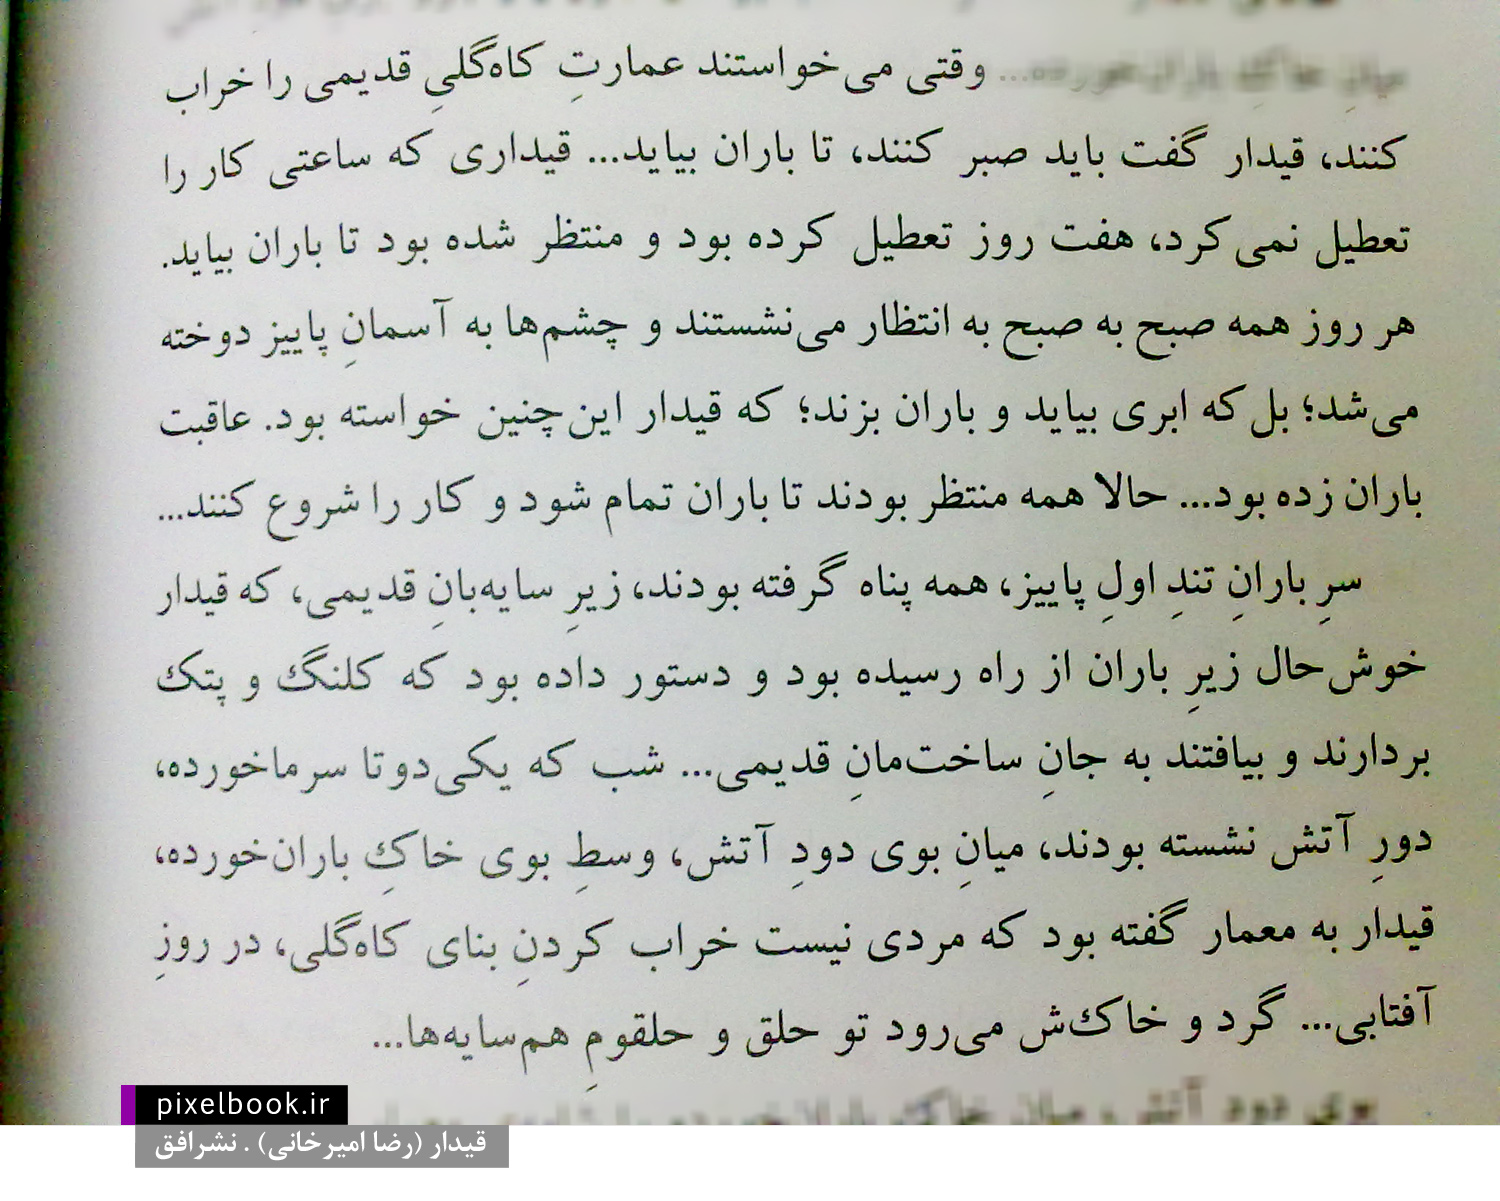 ... وقتی می‌خواستند عمارتِ کاه‌گلیِ قدیمی را خراب
کنند، قیدار گفت باید صبر کنند، تا باران بیاید... قیداری که ساعتی کار را
تعطیل نمی‌کرد، هفت روز تعطیل کرده بود و منتظر شده بود تا باران بیاید.
هر روز همه صبح به صبح به انتظار می‌نشستند و چشم‌ها به آسمانِ پاییز دوخته
می‌شد؛ بل که ابری بیاید و باران بزند؛ که قیدار این‌چنین خواسته بود. عاقبت
باران زده بود... حالا همه منتظر بودند تا باران تمام شود و کار را شروع کنند...
سرِ بارانِ تندِ اولِ پاییز، همه پناه گرفته بودند، زیرِ سایه‌بانِ قدیمی، که قیدار
خوش‌حال زیرِ باران از راه رسیده بود و دستور داده بود که کلنگ و پتک
بردارند و بیافتند به جانِ ساخت‌مانِ قدیمی... شب که یکی‌دوتا سرماخورده،
دورِ آتش نشسته بودند، میانِ بوی دودِ آتش، وسطِ بوی خاکِ باران‌خورده،
قیدار به معمار گفته بود که مردی نیست خراب کردنِ بنای کاه‌گلی، در روزِ
آفتابی... گرد و خاک‌ش می‌رود تو حلق و حلقومِ هم‌سایه‌ها...
pixelbook.ir
قیدار (رضا امیرخانی) . نشرافق